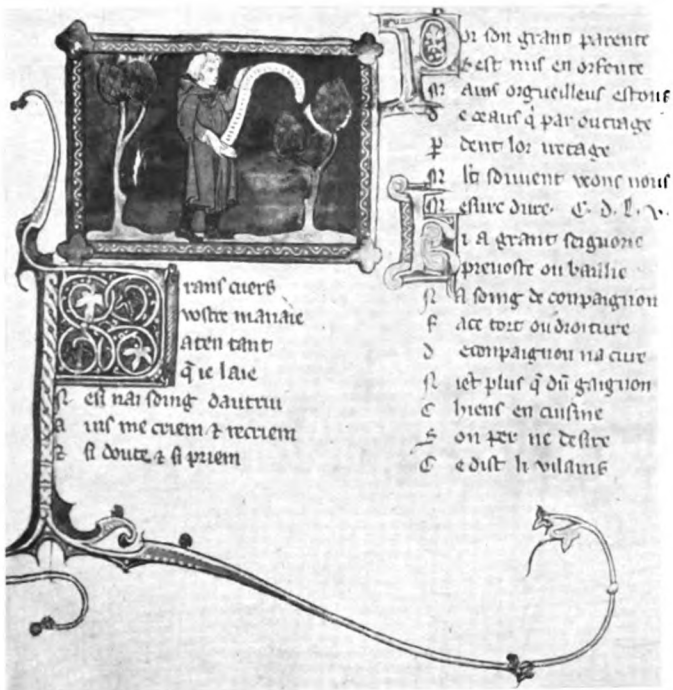 rans cuers
vostre manaie
aten tant
q̄ ie laie
N en nai soing dautrui
A ins me criem ⁊ recriem
⁊ si doute ⁊ si priem
Por son grant parente
S est mis en orfente
M ains orgueilleus estons
D e ceaus q̄ par outrage
P dent lor
M lt souvent veons nous
M esure dure. C. d. l. v.
Ki a grant seignorie
prevoste ou baillie
N a soing de conpaignon
F ace tort ou droiture
D econpaignon na cure
N ient plus q̄ dū gaignon
C hiens en cuisine
S on per ne desire
C e dist li vilains